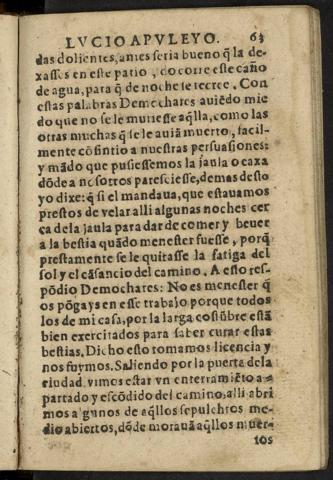 LVCIO APVLEYO. 63
das dolientes, antes seria bueno q̃ la de-
xasses en este patio, do corre este caño
de agua, para q̃ de noche le recree. Con
estas palabras Demochares auiẽdo mie
do que no se le muriesse aq̃lla, como las
otras muchas q̃ se le auiã muerto, facil-
mente cõsintio a nuestras persuasiones:
y mãdo que pusiessemos la jaula o caxa
dõde a nosotros paresciesse, demas desto
yo dixe: q̃ si el mandaua, que estauamos
prestos de velar alli algunas noches cer
ca de la jaula para dar de comer y beuer
a la bestia quãdo menester fuesse, porq̃
prestamente se le quitasse la fatiga del
sol y el cãsancio del camino. A esto res-
põdio Demochares: No es menester q̃
os põgays en esse trabajo porque todos
los de mi casa, por la larga costũbre estã
bien exercitados para saber curar estas
bestias. Dicho esto tomamos licencia y
nos fuymos. Saliendo por la puerta de la
ciudad vimos estar vn enterramiẽto a-
partado y escõdido del camino, alli abri
mos algunos de aq̃llos sepulchros me-
dio abiertos, dõde morauã aq̃llos muer-
tos